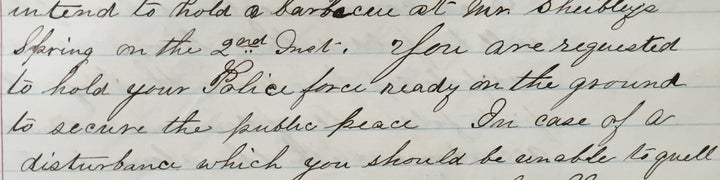 intend to hold a barbecue at Mr. Sheibleys
Spring on the 2nd Inst. You are requested
to hold your Police force ready on the ground
to secure the public peace In case of a
disturbance which you should be unable to quell